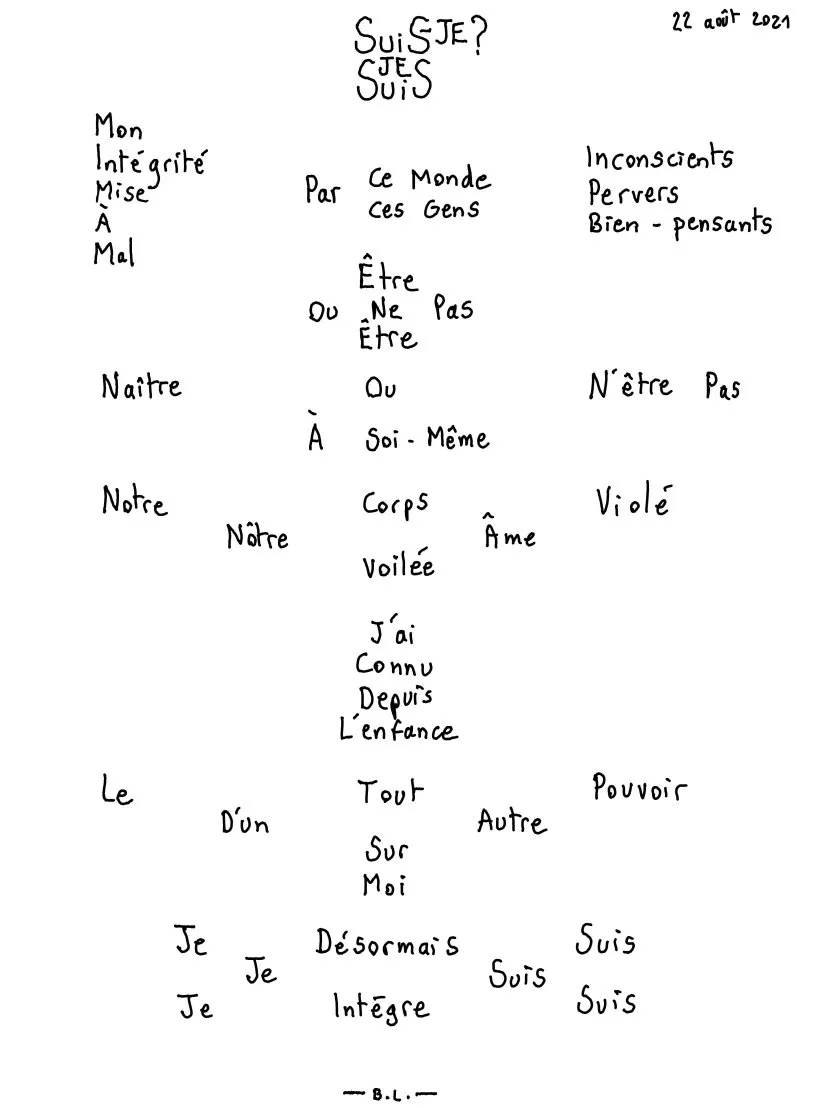 22 août 2021
SuiS-JE?
JE
SuiS
Mon
Intégrité
Mise
À
Mal
Par
Ce Monde
Ces Gens
Inconscients
Pervers
Bien-pensants
Être
Ou Ne Pas
Être
Naître Ou N'être Pas
À Soi-Même
Notre Corps Violé
Nôtre Âme
Voilée
J'ai
Connu
Depuis
L'enfance
Le Tout Pouvoir
D'un Autre
Sur
Moi
Je Désormais Suis
Je Suis
Je Intègre Suis
— B.L. —